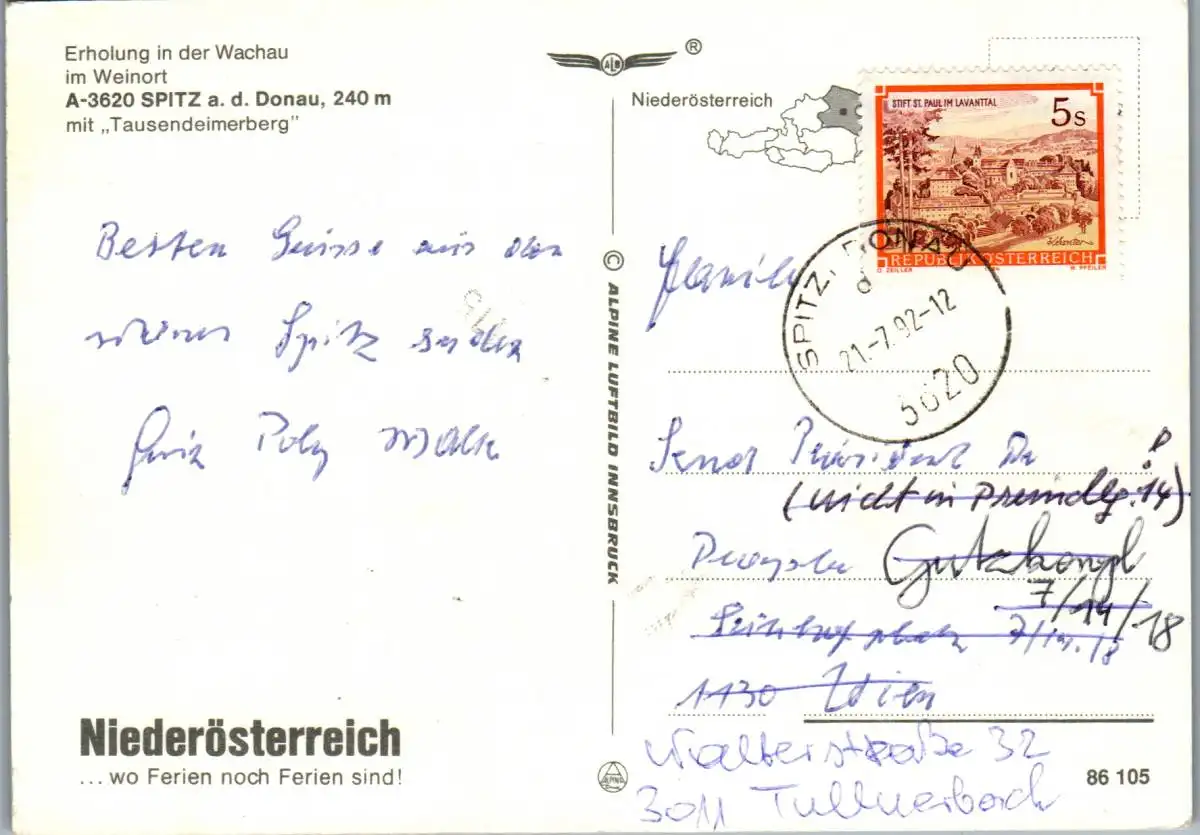 Erholung in der Wachau
im Weinort
A-3620 SPITZ a. d. Donau, 240 m
mit „Tausendeimerberg"
ALB
®
Niederösterreich
STIFT ST. PAUL IM LAVANTTAL
5s
REPUBLIK ÖSTERREICH
O. ZEILLER
W. PFEILER
SPITZ, DONAU
d
21.-7.92-12
3620
Besten Grüsse aus den
schönen Spitz senden
Familie
Präsident
(nicht in Premdlg. 14)
7/14/18
7/14/18
1130 Wien
Walterstraße 32
3011 Tullnerbach
© ALPINE LUFTBILD INNSBRUCK
Niederösterreich
... wo Ferien noch Ferien sind!
86 105